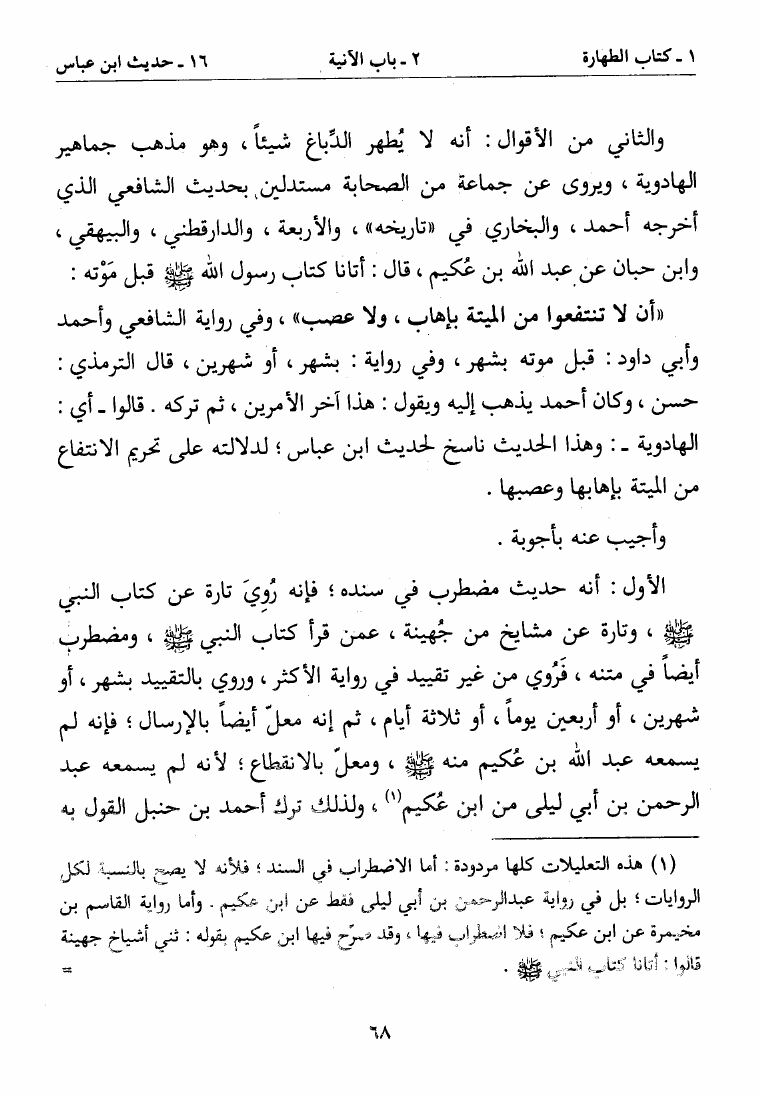 ١ ـ كتاب الطهارة ٢ ـ باب الآنية ١٦ ـ حديث ابن عباس
والثاني من الأقوال : أنه لا يُطهر الدِّباغ شيئاً ، وهو مذهب جماهير
الهادوية ، ويروى عن جماعة من الصحابة مستدلين بحديث الشافعي الذي
أخرجه أحمد ، والبخاري في «تاريخه» ، والأربعة ، والدارقطني ، والبيهقي ،
وابن حبان عن عبد الله بن عُكيم ، قال : أتانا كتاب رسول الله ﷺ قبل مَوْته :
«أن لا تنتفعوا من الميتة بإهاب ، ولا عصب» ، وفي رواية الشافعي وأحمد
وأبي داود : قبل موته بشهر ، وفي رواية : بشهر ، أو شهرين ، قال الترمذي :
حسن ، وكان أحمد يذهب إليه ويقول : هذا آخر الأمرين ، ثم تركه . قالوا ـ أي :
الهادوية ـ : وهذا الحديث ناسخ لحديث ابن عباس ؛ لدلالته على تحريم الانتفاع
من الميتة بإهابها وعصبها .
وأجيب عنه بأجوبة .
الأول : أنه حديث مضطرب في سنده ؛ فإنه رُوِيَ تارة عن كتاب النبي
ﷺ ، وتارة عن مشايخ من جُهينة ، عمن قرأ كتاب النبي ﷺ ، ومضطرب
أيضاً في متنه ، فَرُوي من غير تقييد في رواية الأكثر ، وروي بالتقييد بشهر ، أو
شهرين ، أو أربعين يوماً ، أو ثلاثة أيام ، ثم إنه معلّ أيضاً بالإرسال ؛ فإنه لم
يسمعه عبد الله بن عُكيم منه ﷺ ، ومعلّ بالانقطاع ؛ لأنه لم يسمعه عبد
الرحمن بن أبي ليلى من ابن عُكيم(١) ، ولذلك ترك أحمد بن حنبل القول به
(١) هذه التعليلات كلها مردودة : أما الاضطراب في السند ؛ فلأنه لا يصح بالنسبة لكل
الروايات ؛ بل في رواية عبدالرحمن بن أبي ليلى فقط عن ابن عكيم . وأما رواية القاسم بن
مخيمرة عن ابن عكيم ؛ فلا اضطراب فيها ، وقد صرّح فيها ابن عكيم بقوله : ثني أشياخ جهينة
قالوا : أتانا كتاب النبي ﷺ . =
٦٨